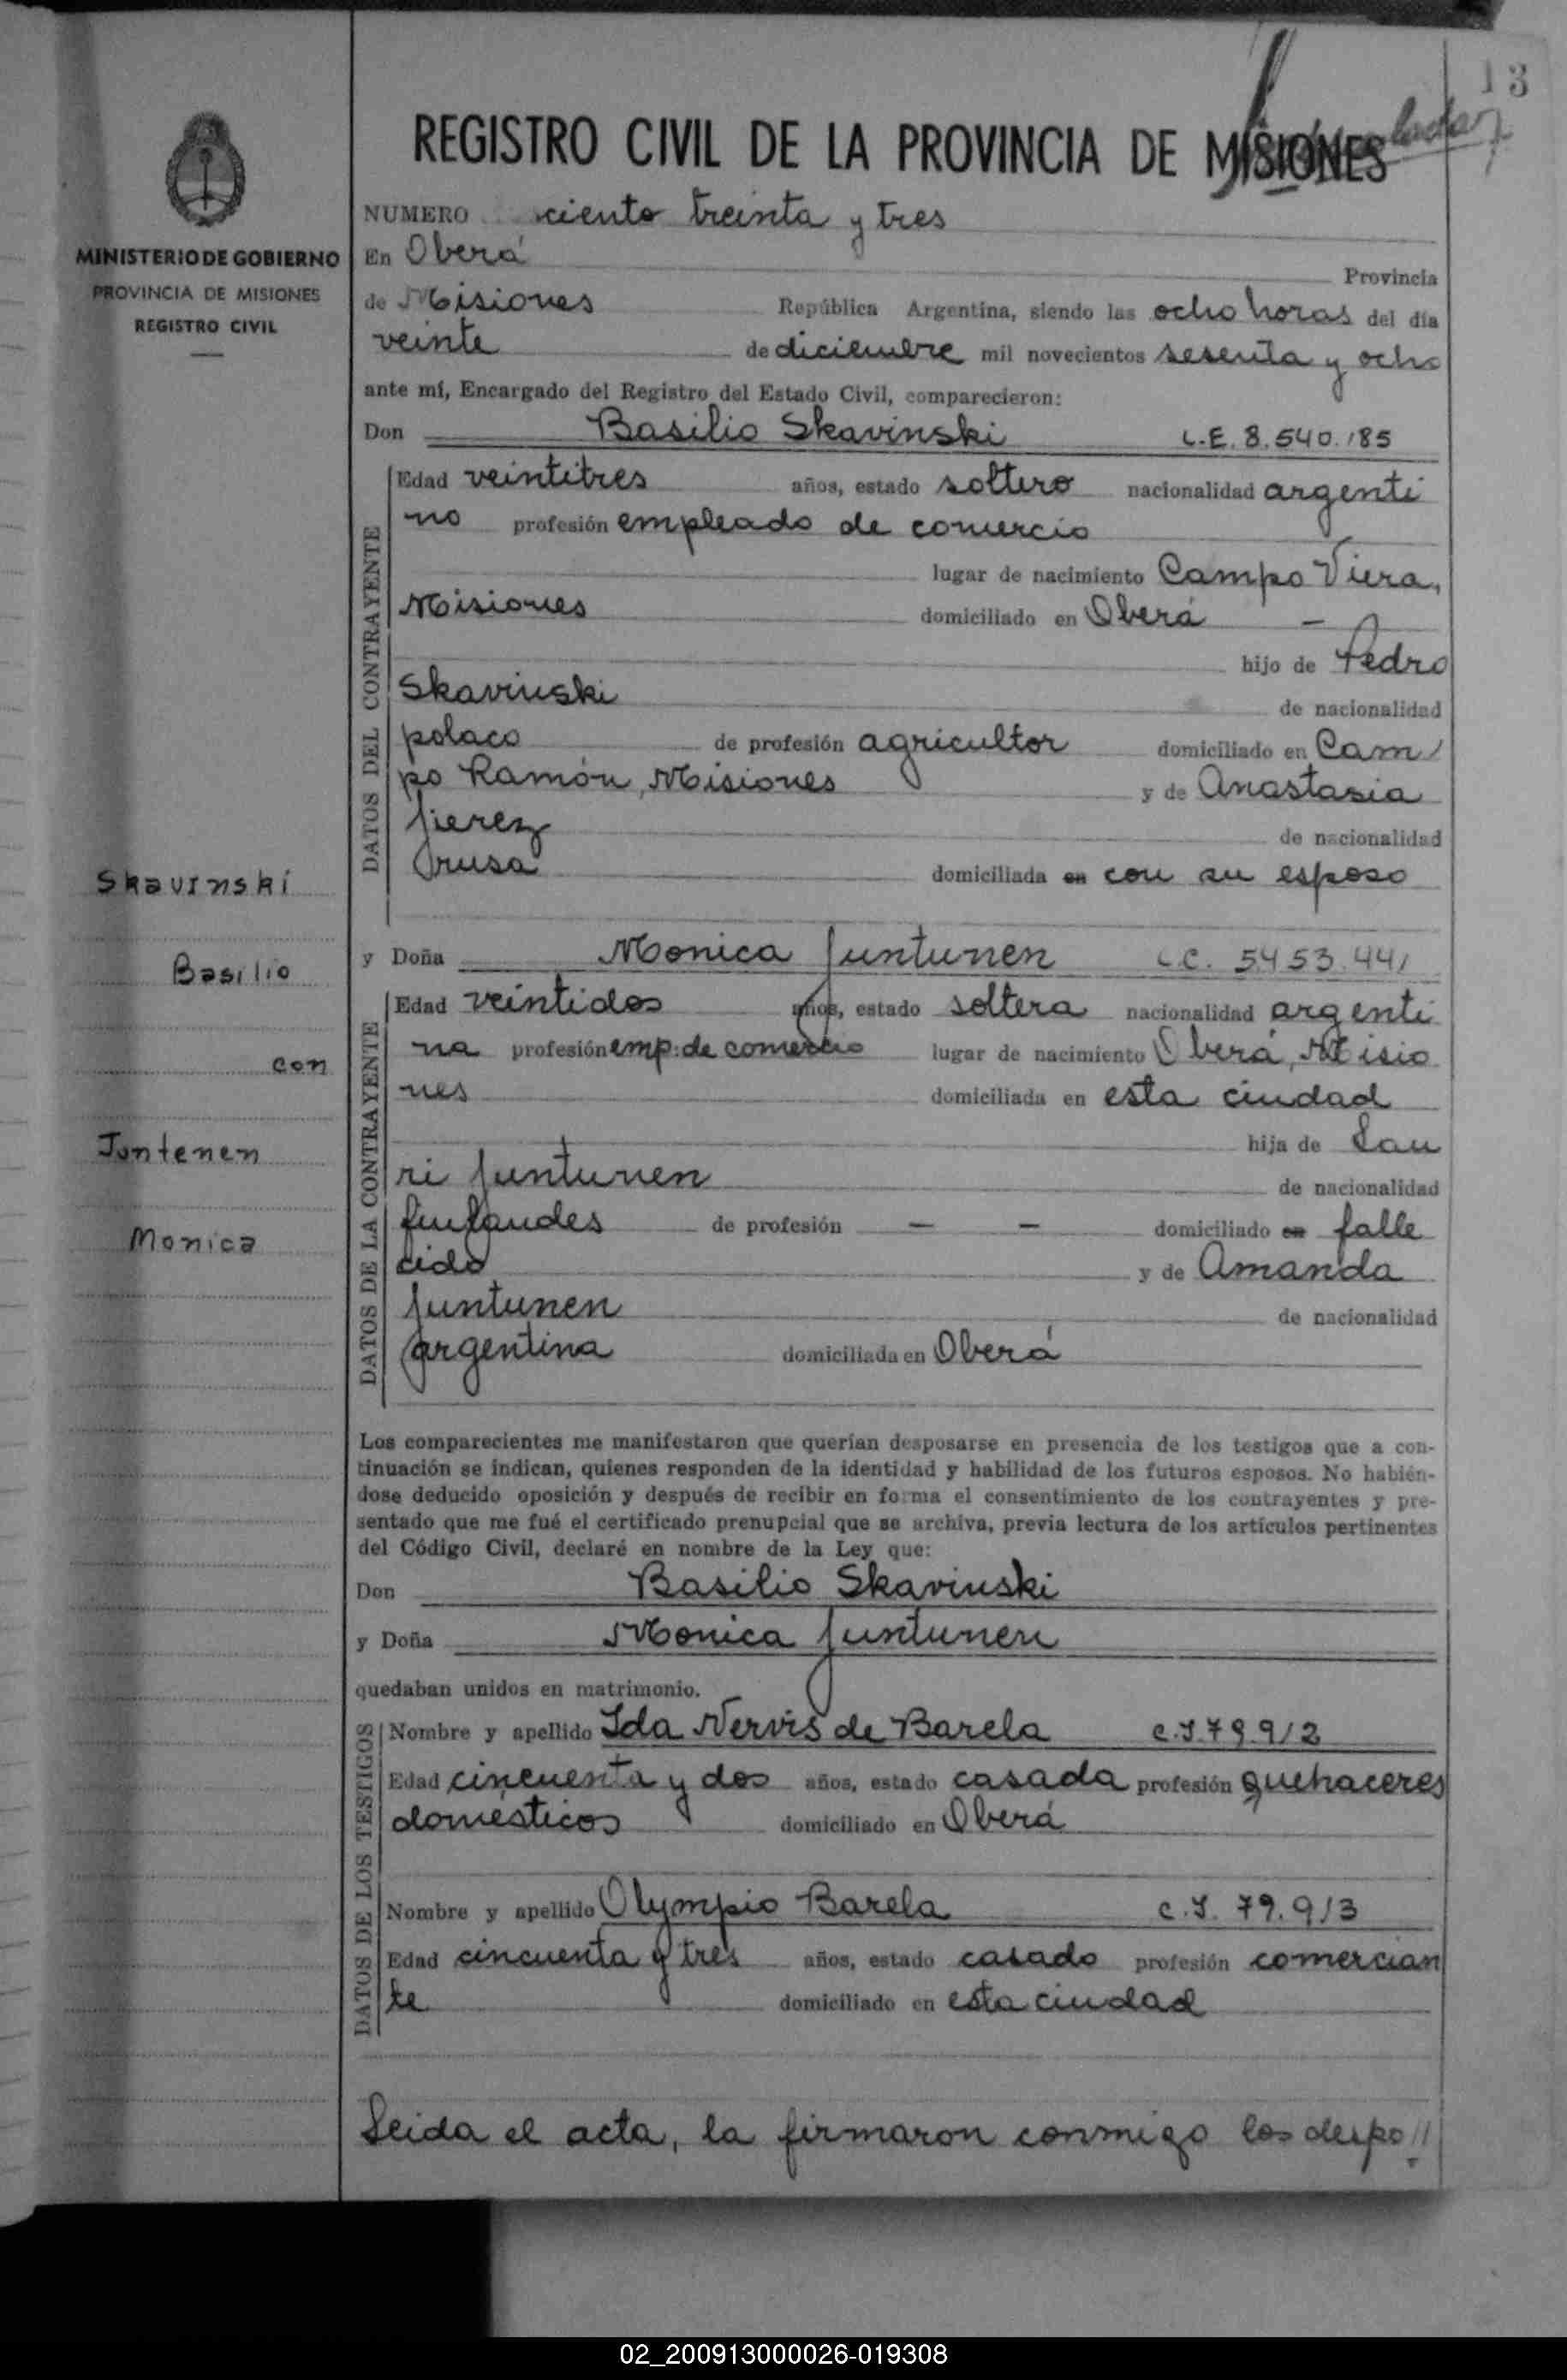 13
REGISTRO CIVIL DE LA PROVINCIA DE MISIONES
NUMERO ciento treinta y tres
MINISTERIO DE GOBIERNO
PROVINCIA DE MISIONES
REGISTRO CIVIL
En Oberá Provincia
de Misiones República Argentina, siendo las ocho horas del día
veinte de diciembre mil novecientos sesenta y ocho
ante mí, Encargado del Registro del Estado Civil, comparecieron:
Don Basilio Skavinski L.E. 8.540.185
DATOS DEL CONTRAYENTE
Edad veintitres años, estado soltero nacionalidad argenti
no profesión empleado de comercio
lugar de nacimiento Campo Viera,
Misiones domiciliado en Oberá –
hijo de Pedro
Skavinski de nacionalidad
polaco de profesión agricultor domiciliado en Cam/
po Ramón, Misiones y de Anastasia
Jierez de nacionalidad
rusa domiciliada en con su esposo
Skavinski
Basilio
con
Juntenen
Monica
y Doña Monica Juntunen L.C. 5453.441
DATOS DE LA CONTRAYENTE
Edad veintidos años, estado soltera nacionalidad argenti
na profesión emp. de comercio lugar de nacimiento Oberá, Misio
nes domiciliada en esta ciudad
hija de Lau
ri Juntunen de nacionalidad
finlandes de profesión – – domiciliado en falle
cido y de Amanda
Juntunen de nacionalidad
argentina domiciliada en Oberá
Los comparecientes me manifestaron que querían desposarse en presencia de los testigos que a con-
tinuación se indican, quienes responden de la identidad y habilidad de los futuros esposos. No habién-
dose deducido oposición y después de recibir en forma el consentimiento de los contrayentes y pre-
sentado que me fué el certificado prenupcial que se archiva, previa lectura de los artículos pertinentes
del Código Civil, declaré en nombre de la Ley que:
Don Basilio Skavinski
y Doña Monica Juntunen
quedaban unidos en matrimonio.
DATOS DE LOS TESTIGOS
Nombre y apellido Ida Nervis de Barela C.I 79.912
Edad cincuenta y dos años, estado casada profesión quehaceres
domésticos domiciliado en Oberá
Nombre y apellido Olympio Barela C.I. 79.913
Edad cincuenta y tres años, estado casado profesión comercian
te domiciliado en esta ciudad
Leida el acta, la firmaron conmigo los despo//
02_200913000026-019308